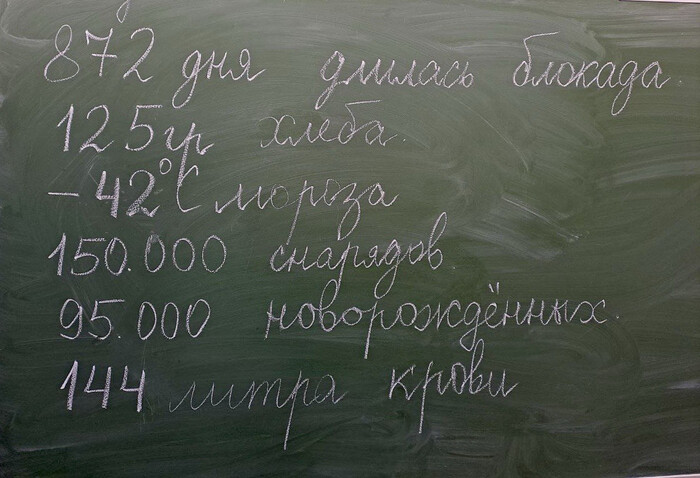 872 дня длилась блокада.
125 гр хлеба.
-42°С мороза
150.000 снарядов
95.000 новорождённых.
144 литра крови